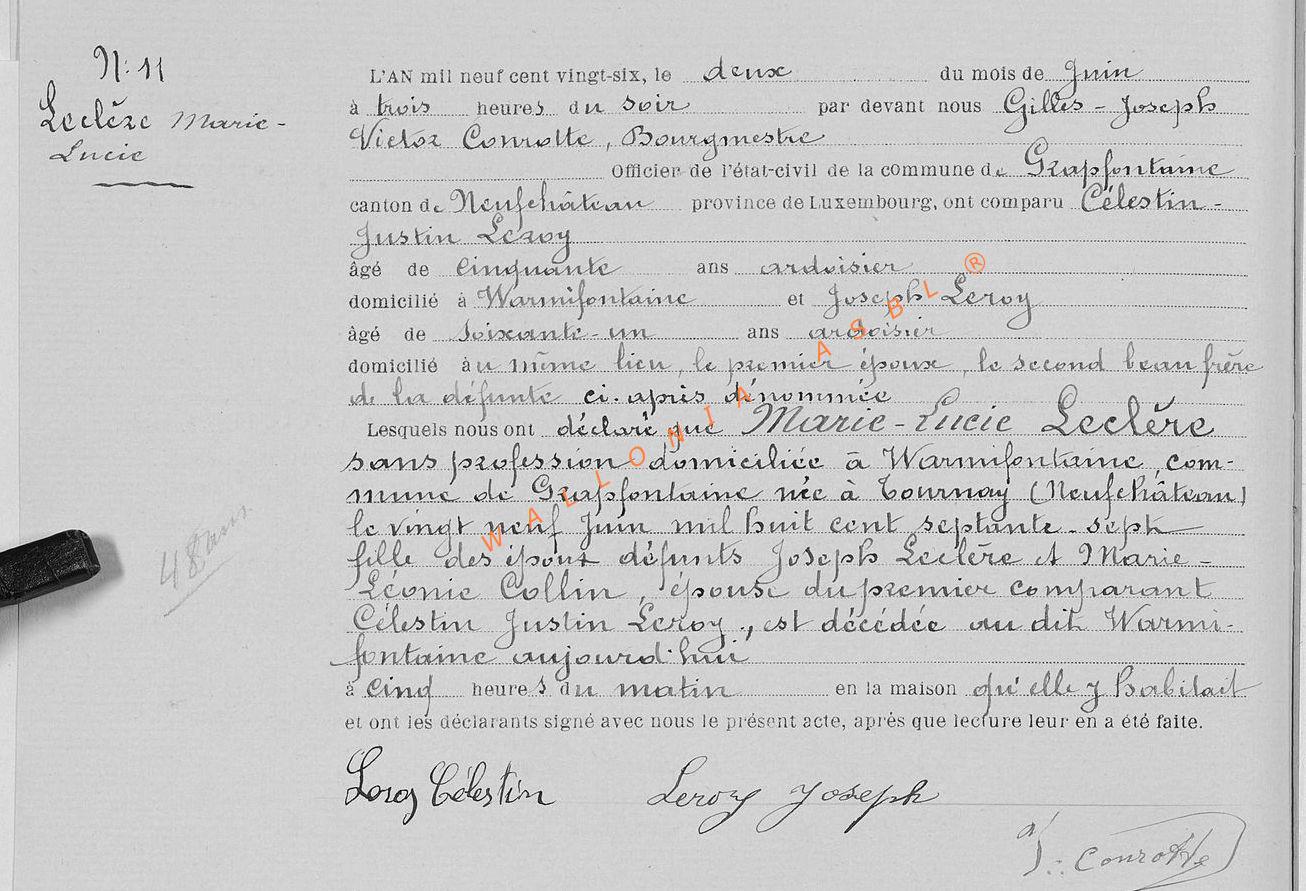 N: 11
Leclère Marie-
Lucie
L'AN mil neuf cent vingt-six, le deux du mois de Juin
à trois heures du soir par devant nous Gilles-Joseph
Victor Conrotte, Bourgmestre
Officier de l'état-civil de la commune de Grapfontaine
canton de Neufchâteau province de Luxembourg, ont comparu Célestin-
Justin Leroy
âgé de cinquante ans ardoisier
domicilié à Warmifontaine et Joseph Leroy
âgé de soixante-un ans ardoisier
domicilié au même lieu, le premier époux, le second beau frère
de la défunte ci-après dénommée
Lesquels nous ont déclaré que Marie-Lucie Leclère
sans profession domiciliée à Warmifontaine, com-
mune de Grapfontaine née à Tournay (Neufchâteau)
le vingt neuf Juin mil huit cent septante-sept
fille des époux défunts Joseph Leclère et Marie-
Léonie Collin, épouse du premier comparant
Célestin Justin Leroy, est décédée au dit Warmi-
fontaine aujourd'hui
à cinq heures du matin en la maison qu'elle y habitait
et ont les déclarants signé avec nous le présent acte, après que lecture leur en a été faite.
48 ans
Leroy Célestin Leroy Joseph
J. Conrotte
WALLONIA ASBL ®